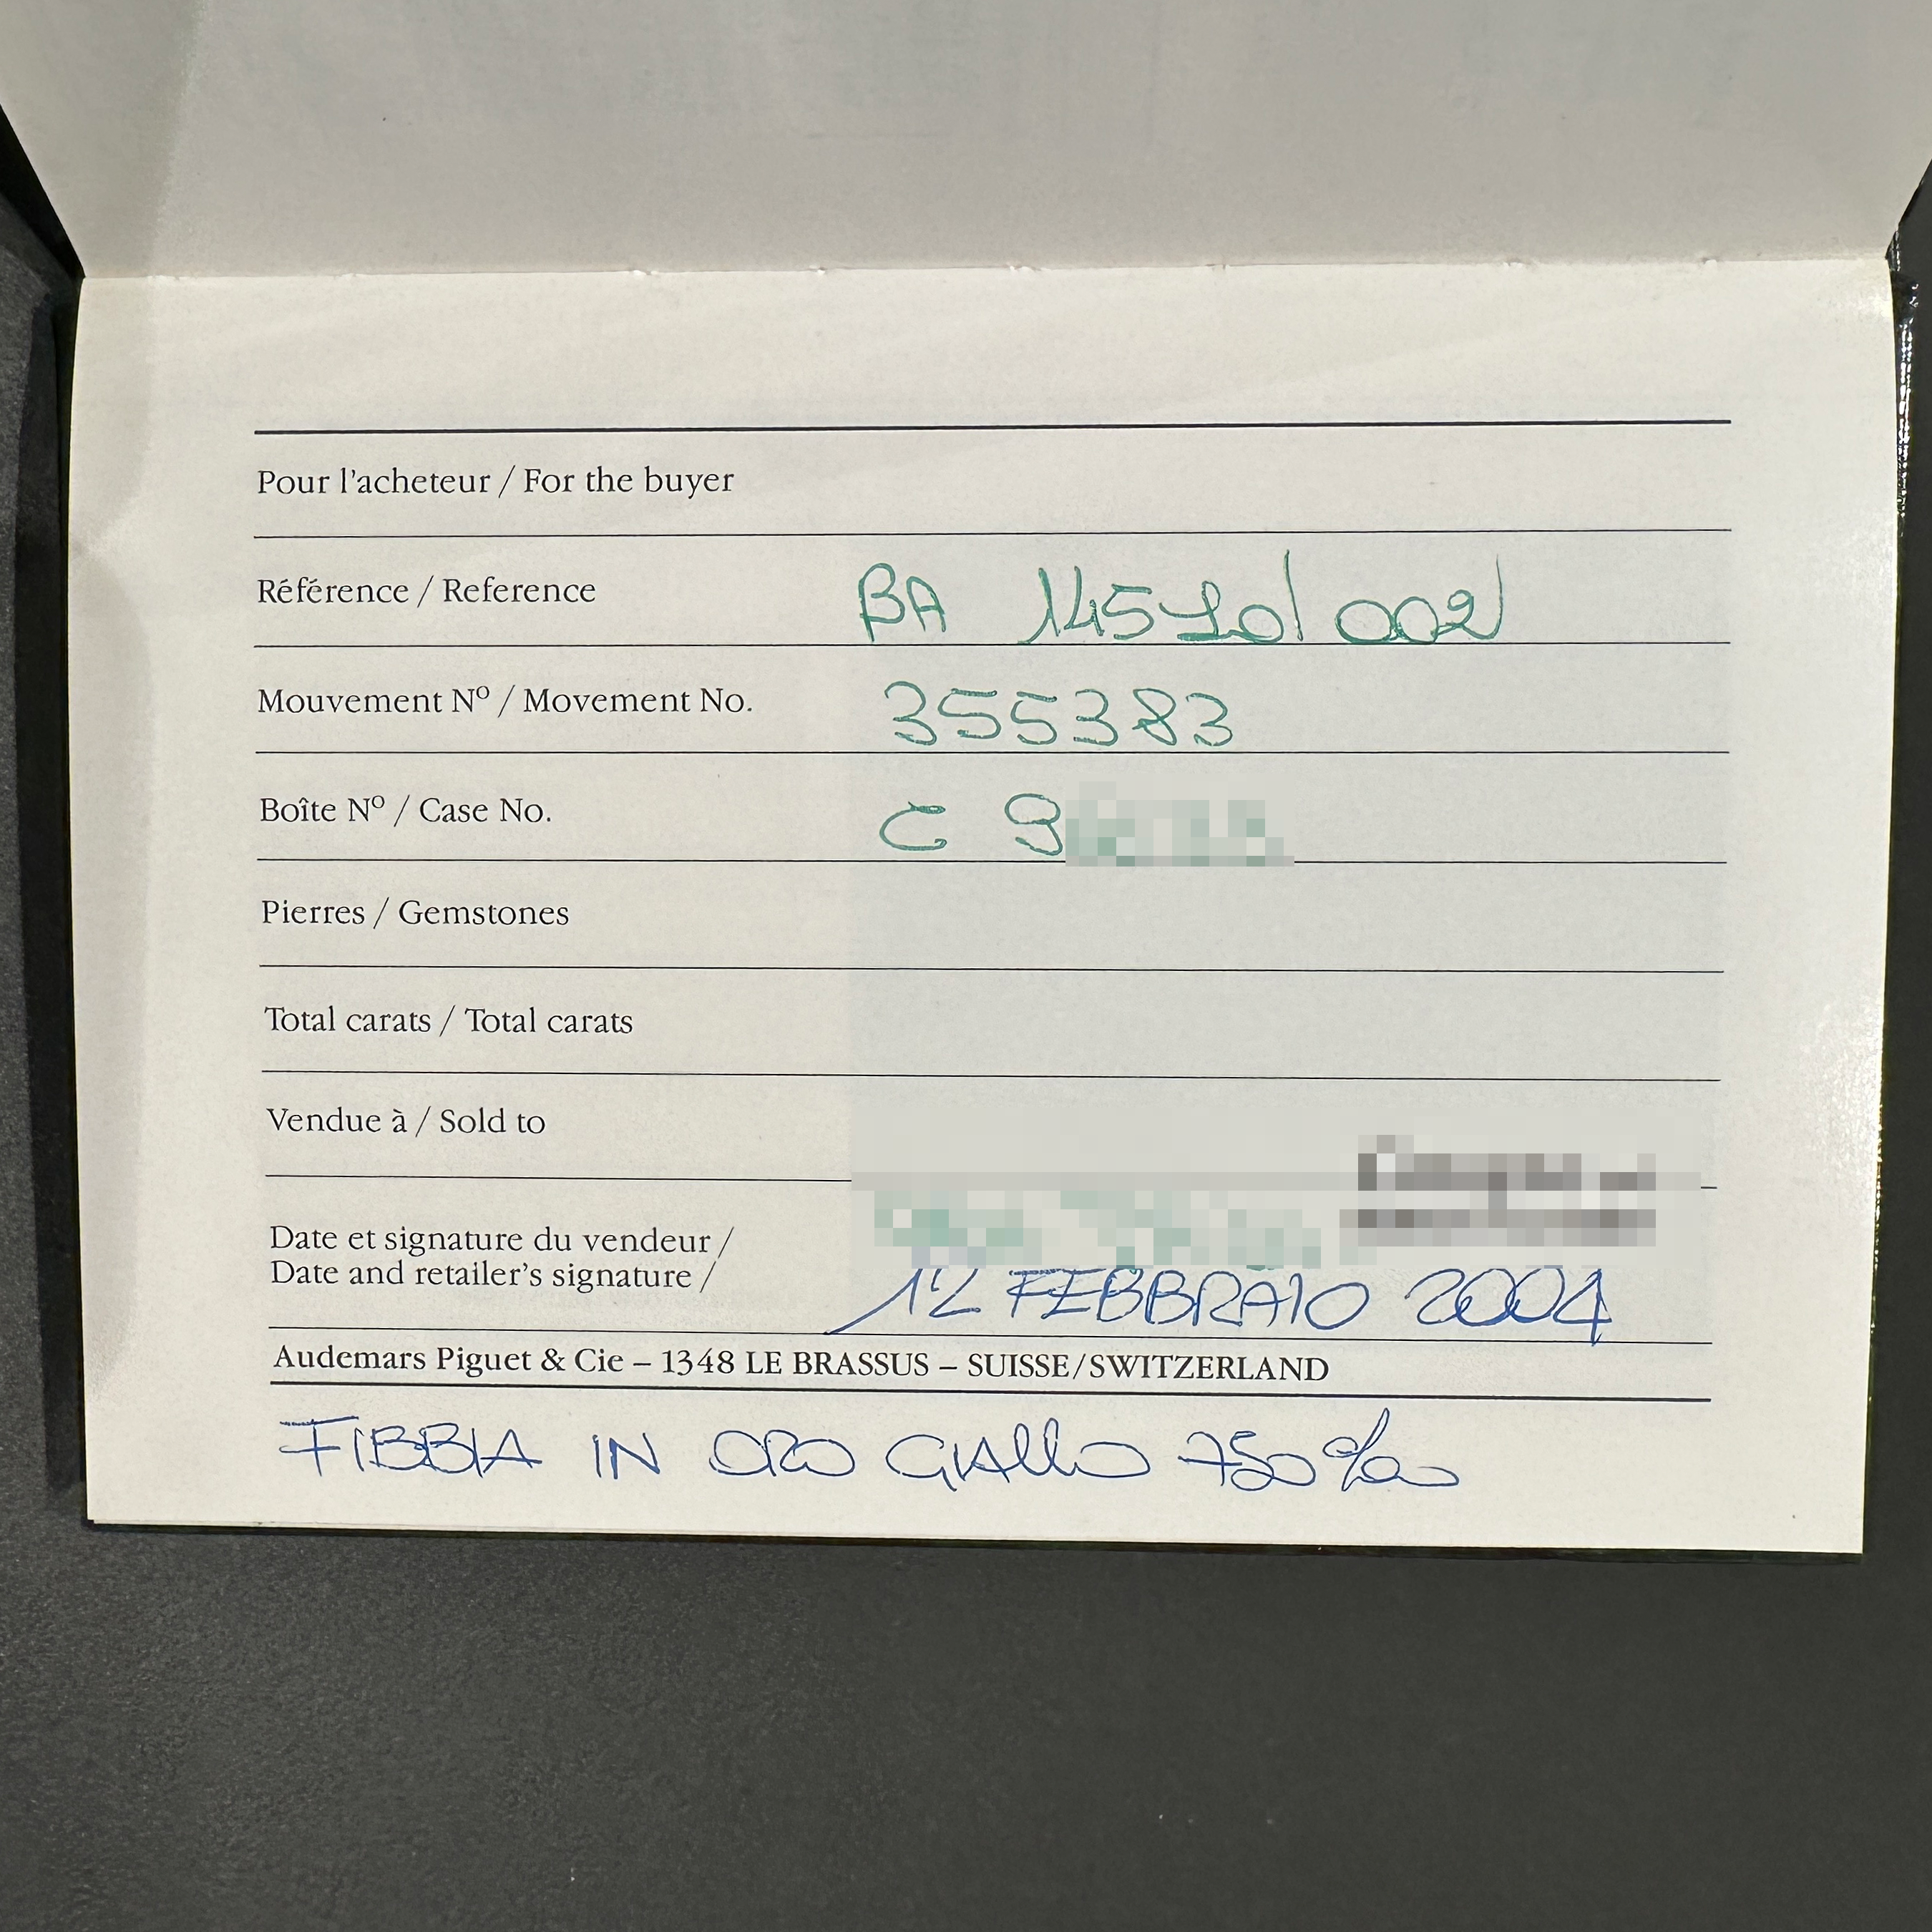 Pour l'acheteur / For the buyer
Référence / Reference BA 14570/002
Mouvement Nº / Movement No. 355383
Boîte Nº / Case No. C 9
Pierres / Gemstones
Total carats / Total carats
Vendue à / Sold to
Date et signature du vendeur /
Date and retailer's signature / 12 FEBBRAIO 2004
Audemars Piguet & Cie – 1348 LE BRASSUS – SUISSE/SWITZERLAND
FIBBIA IN ORO GIALLO 750‰